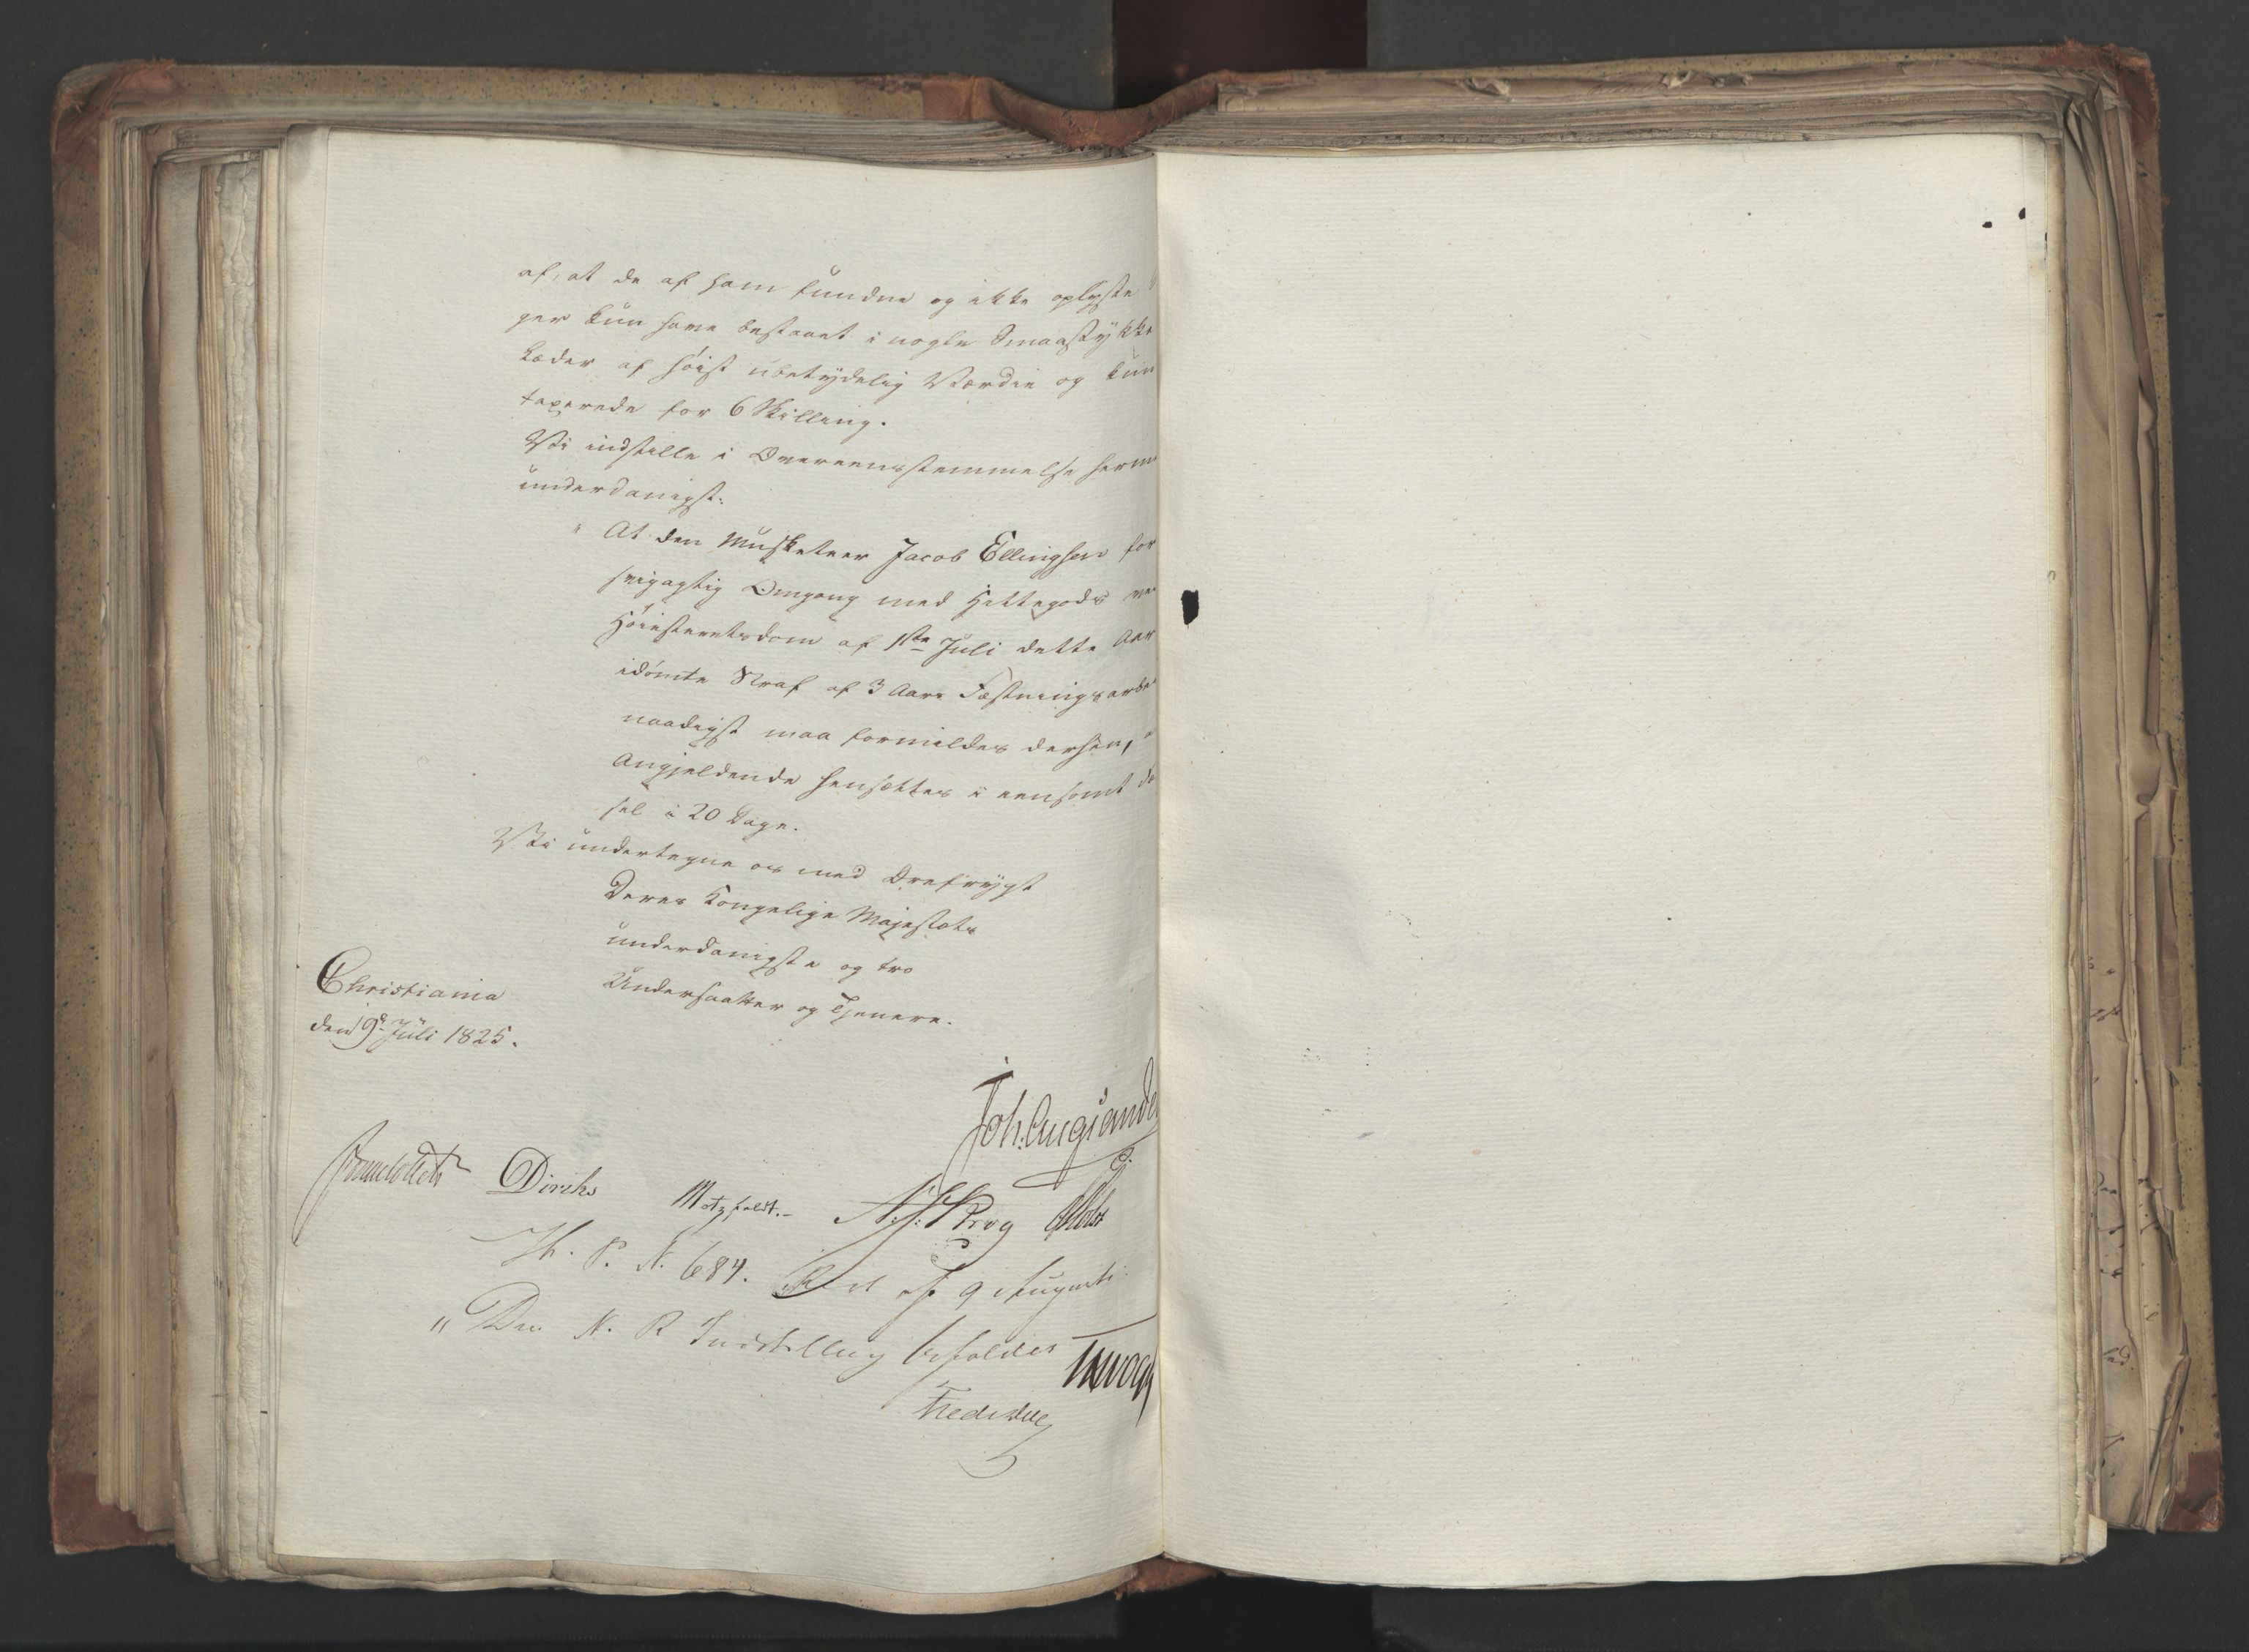 af, at de af ham fundne og ikke oplyste
ger kun have bestaaet i nogle Smaastykke
Læder af høist ubetydelig Værdie og kun
taxerede for 6 Skilling.
Vi indstille i Overeensstemmelse herme
underdanigst:
" At den Musketeer Jacob Ellingsen for
svigagtig Omgang med Hittegods ve
Høiesteretsdom af 1ste Juli dette Aar
idømte Straf af 3 Aars Fæstningsarbe
naadigst maa formildes derhen, a
Angjeldende hensættes i eensomt
sel i 20 Dage.
Vi undertegne os med Ærefrygt
Deres Kongelige Majestæts
underdanigste og tro
Undersaatter og Tjenere.
Christiania
den 19de Juli 1825.
Joh. Aug: Sande
Jonas Collett Diriks Motzfeldt. A. S. Krog Holst
Th. P. N. 684. Res. af 9 Augusti
" Den N. R Indstilling bifaldes
Fred: Due